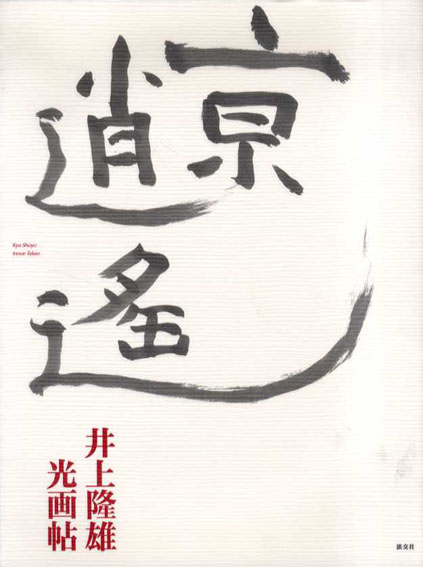 京
逍遙
Kyo Shoyo
Inoue Takao
井上隆雄
光画帖
淡交社